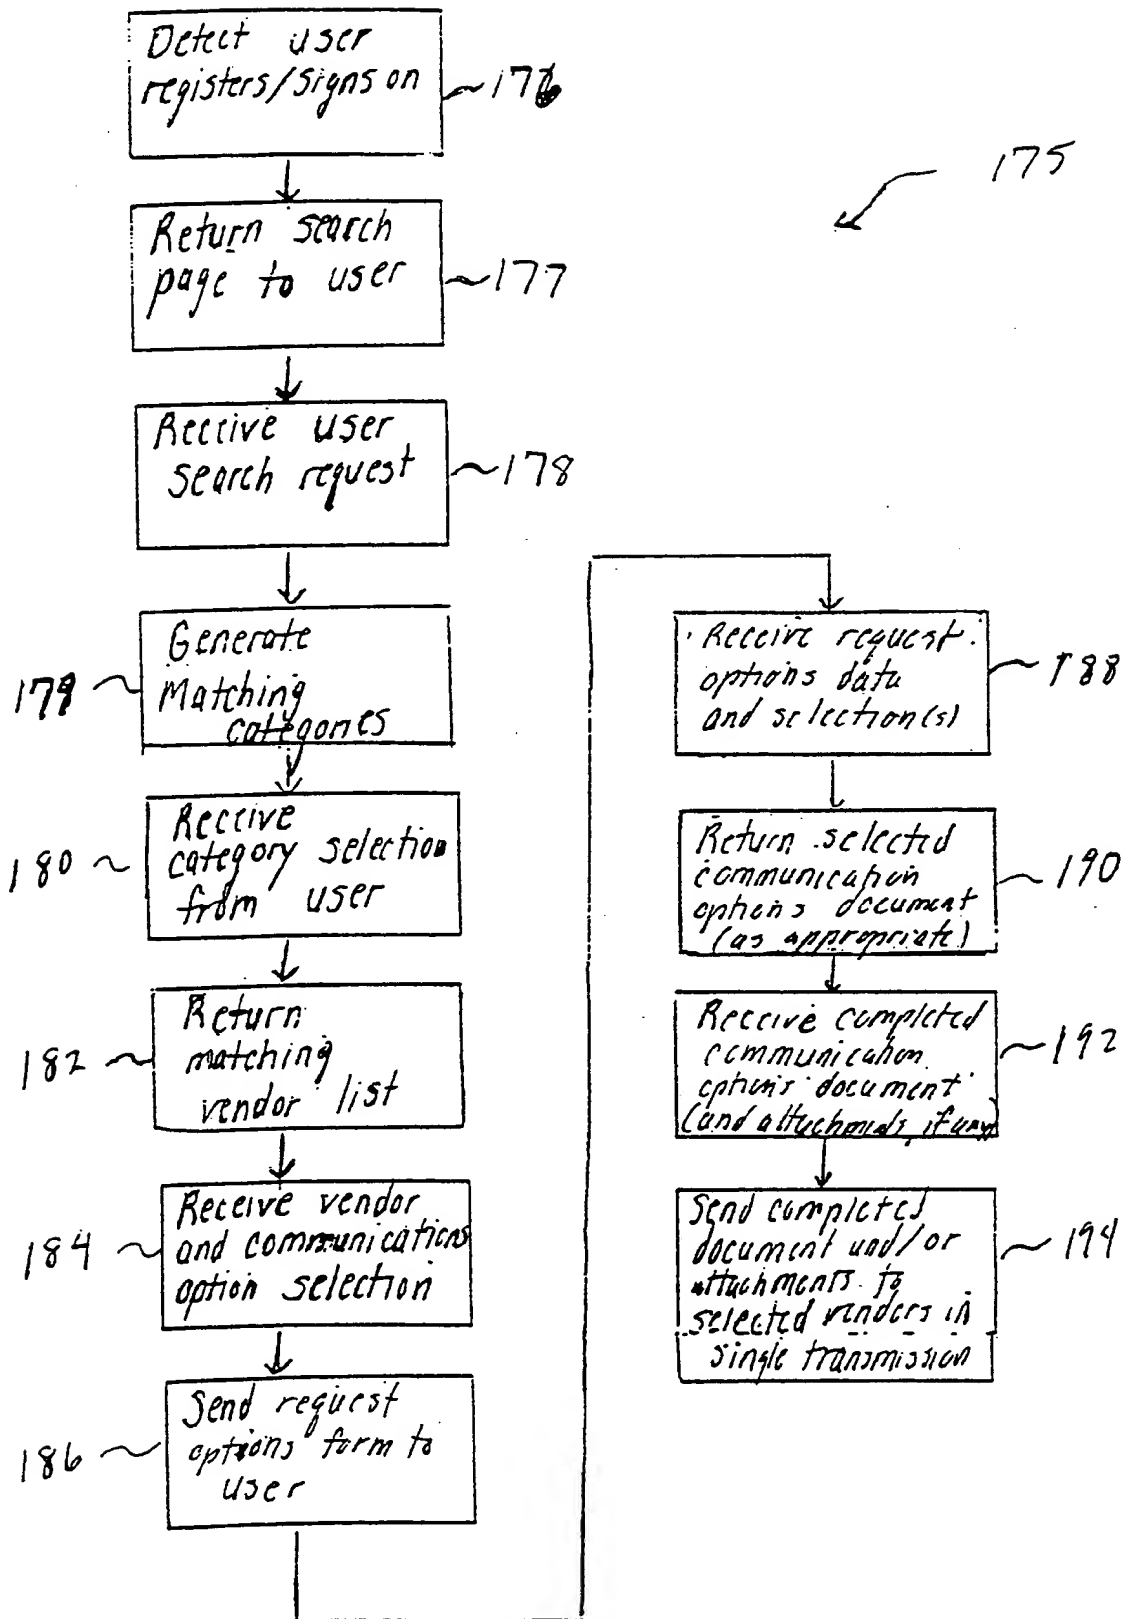 Detect user
registers/signs on
176
175
Return search
page to user
177
Receive user
search request
178
Generate
Matching
categories
179
Receive
category selection
from user
180
Return
matching
vendor list
182
Receive vendor
and communications
option selection
184
Send request
options form to
user
186
Receive request
options data
and selection(s)
188
Return selected
communication
options document
(as appropriate)
190
Receive completed
communication
options document
(and attachments, if any)
192
Send completed
document and/or
attachments to
selected venders in
single transmission
194